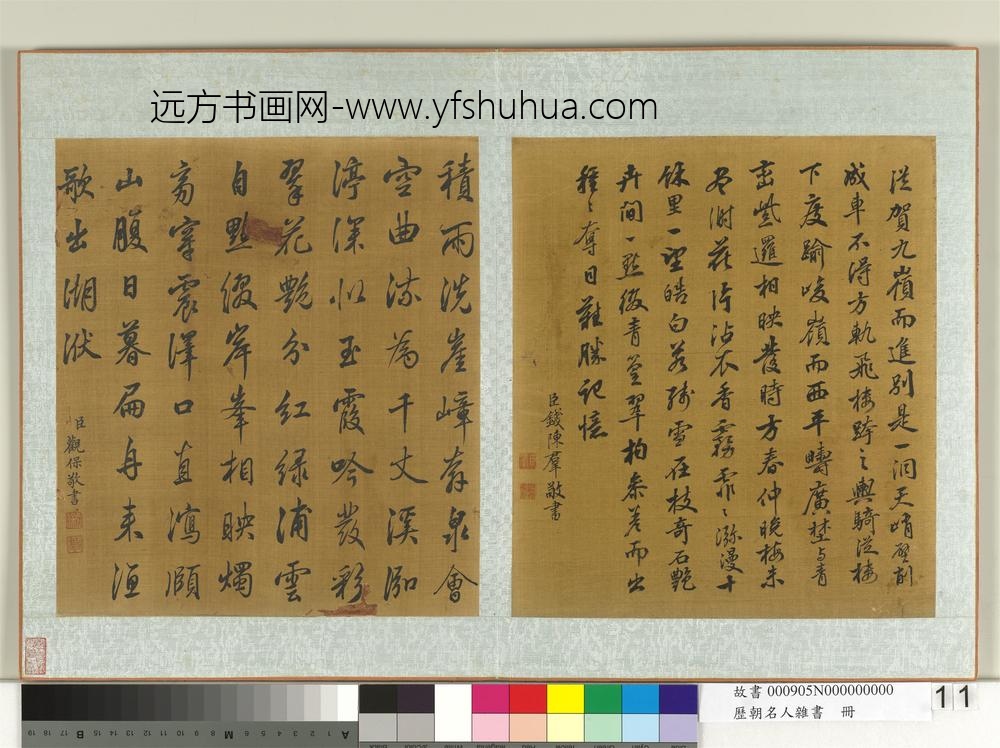 远方书画网-www.yfshuhua.com
從賀九嶺而進別是一洞天峭壁削
成車不得方軌飛棧跨之輿騎從棧
下度踰峻嶺而西平疇廣埜與青
巒紫邏相映發時方春仲晚梅未
盡謝花片沾衣香霧霏〻瀰漫十
餘里一望皓白若殘雪在枝奇石艷
卉間一點綴青篁翠柏參差而出
種〻奪目難勝記憶
臣錢陳羣敬書
積雨洗崖嶂眾泉會
空曲流為千丈溪泓
渟深似玉霞吟發彩
翠花艷分紅綠浦雲
自點綴岸峯相映燭
旁穿震澤口直瀉
山腹日暮扁舟來洄
歌出湖洑
臣觀保敬書
故書 000905N000000000
歷朝名人雜書 冊
11